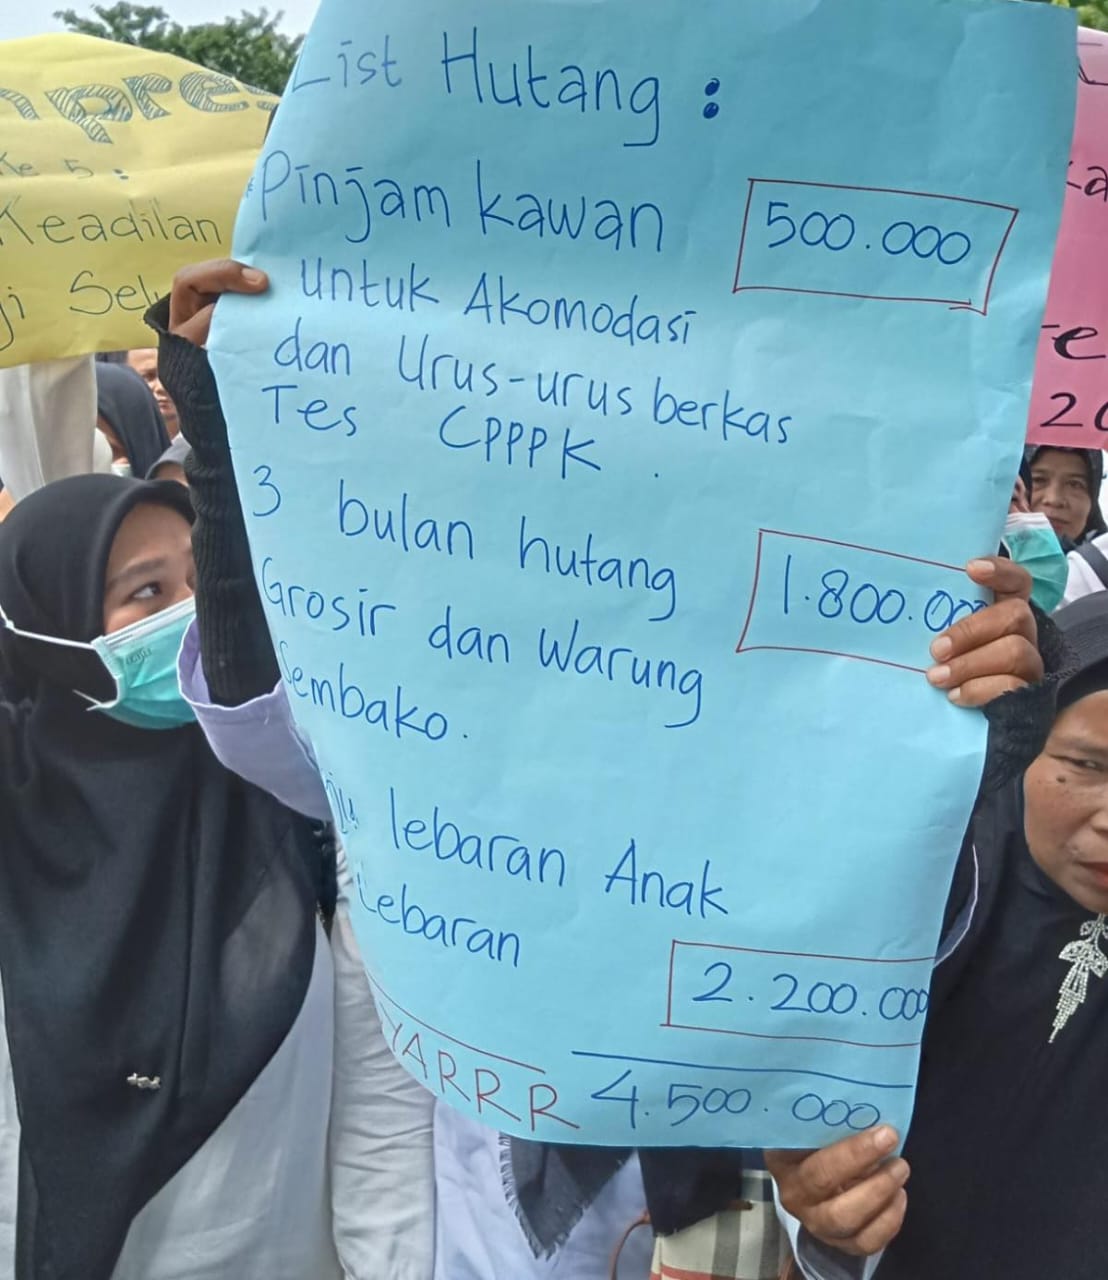 List Hutang :
Pinjam kawan 500.000
untuk Akomodasi
dan Urus-urus berkas
Tes CPPPK.
3 bulan hutang 1.800.000
Grosir dan Warung
Sembako.
lebaran Anak
Lebaran
2.200.000
YARRR 4.500.000
Ke 5 :
Keadilan